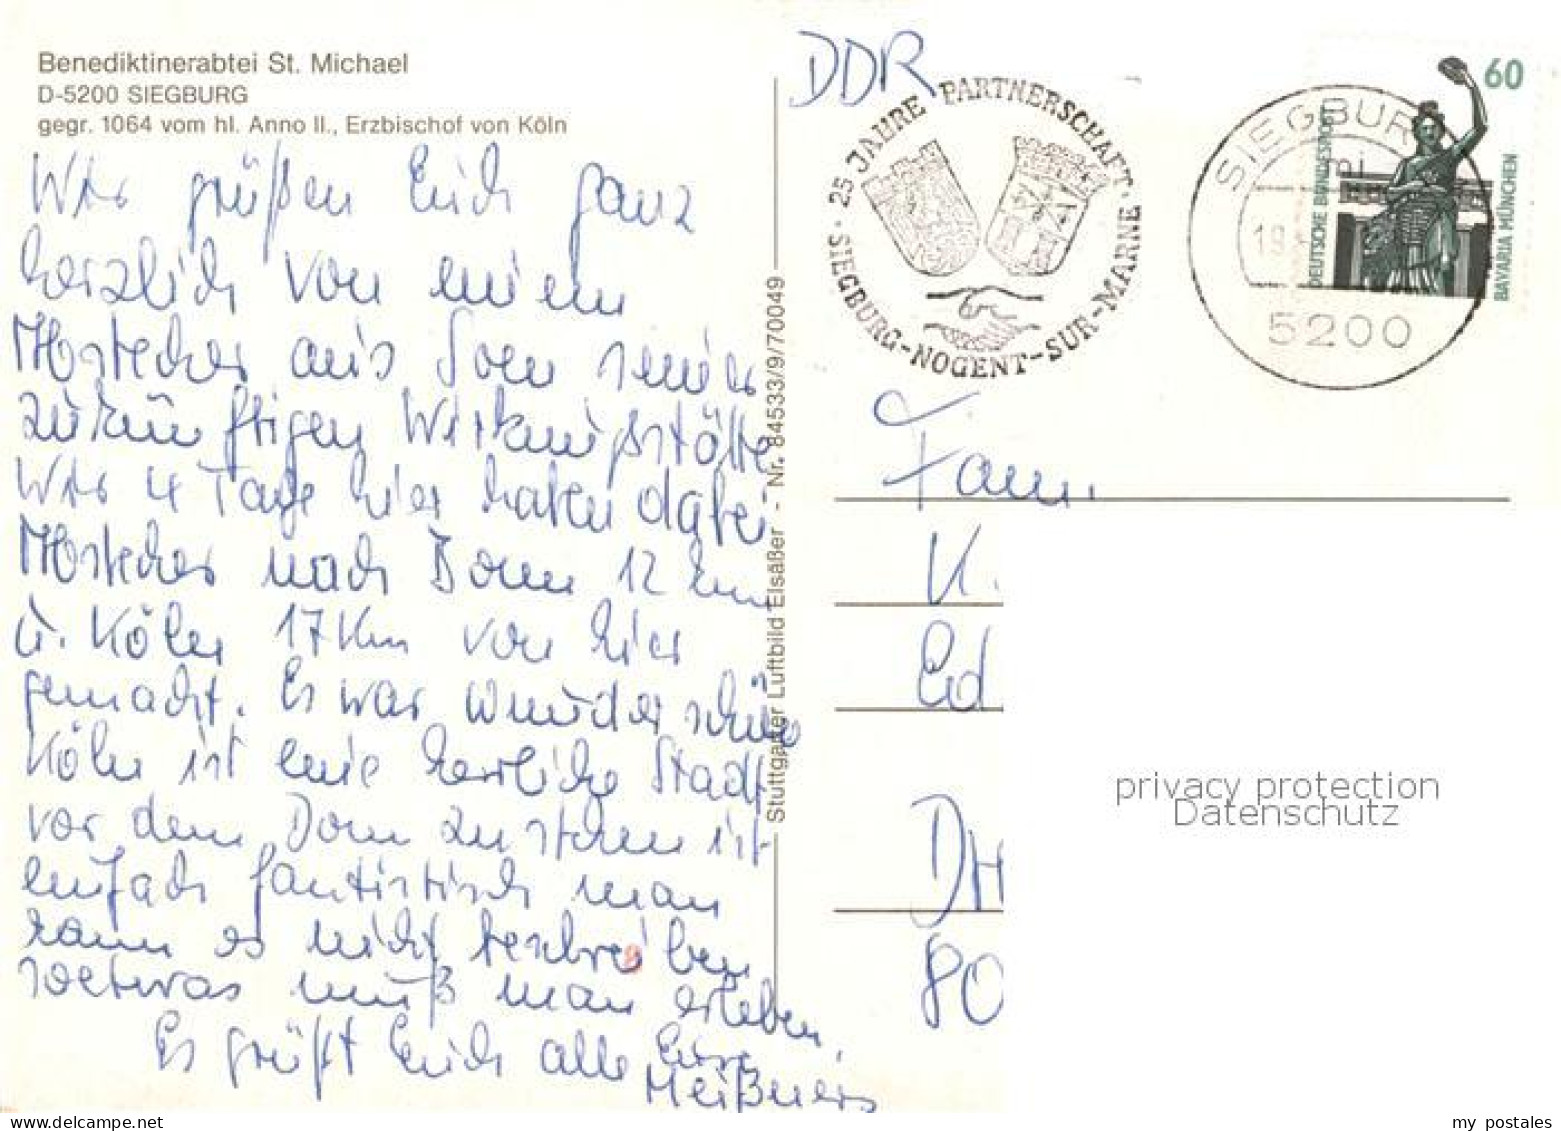 Benediktinerabtei St. Michael
D-5200 SIEGBURG
gegr. 1064 vom hl. Anno II., Erzbischof von Köln
Wir grüßen Euch ganz
herzlich von einem
Abstecher aus
zukünftigen Wirkungsstätte
Wir 4 Tage hier haben dabei
Abstecher nach Bonn 12 km
u. Köln 17 Km von hier
gemacht. Es war wunderschön
Köln ist eine herrliche Stadt
vor dem Dom zu stehen ist
einfach fantistisch man
kann es nicht beschreiben
soetwas muß man erleben.
Es grüßt Euch alle Eure
Meißners
Stuttgarter Luftbild Elsäßer - Nr. 84533/9/70049
DDR
25 JAHRE PARTNERSCHAFT
SIEGBURG-NOGENT-SUR-MARNE
SIEGBURG
mi
5200
60
DEUTSCHE BUNDESPOST
BAVARIA MÜNCHEN
Fam.
K.
Ed
DH
80
privacy protection
Datenschutz
my postales